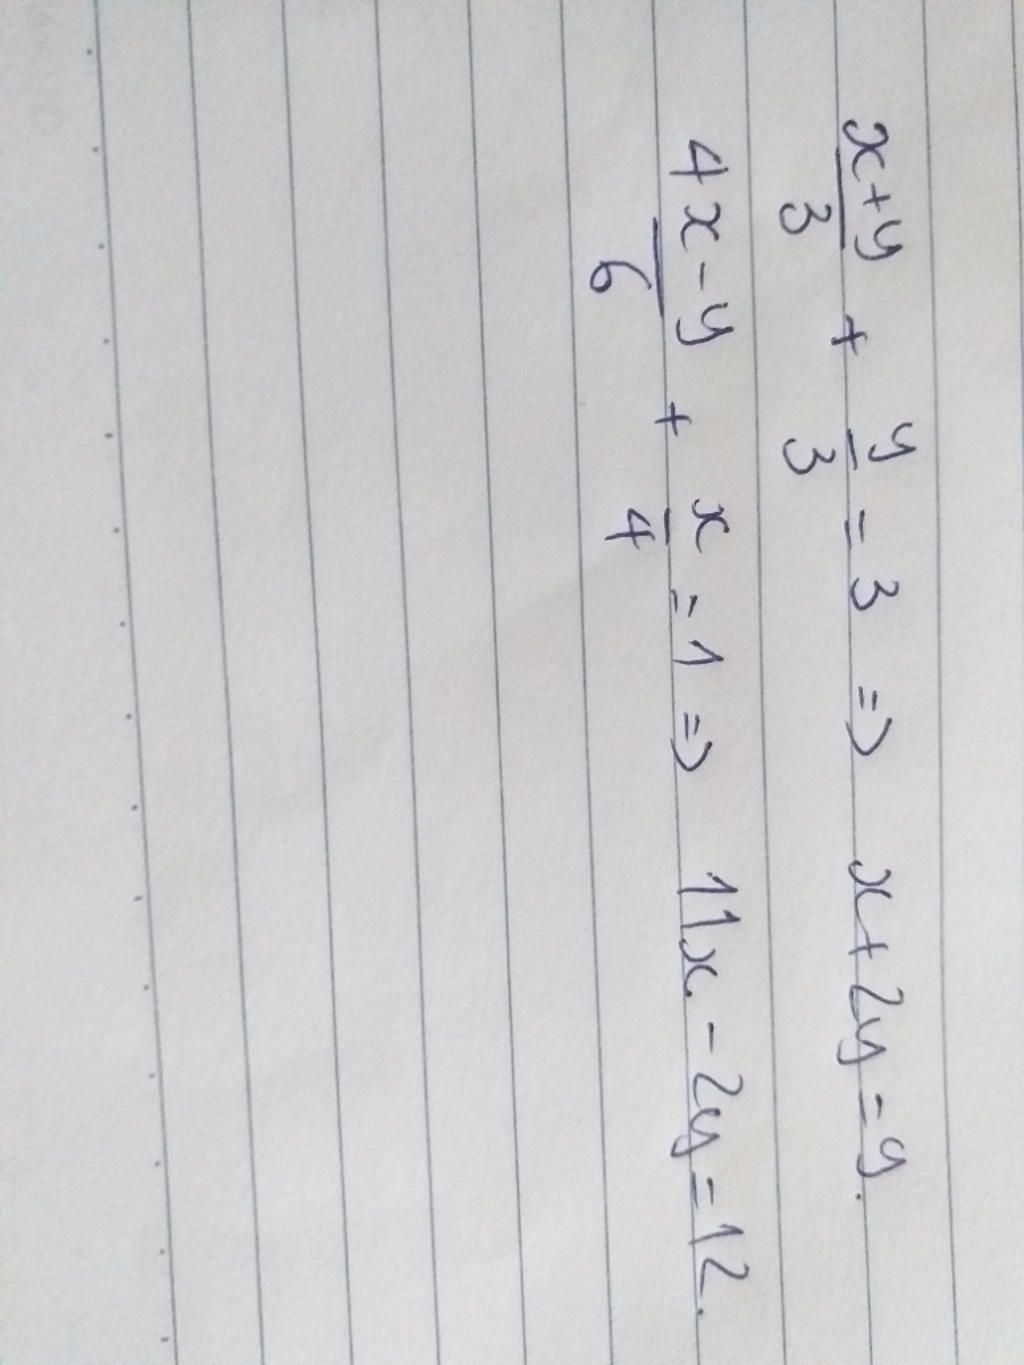 x+y/3 + y/3 = 3 => x+2y=y.
4x-y/6 + x/4 = 1 => 11x - 2y = 12.